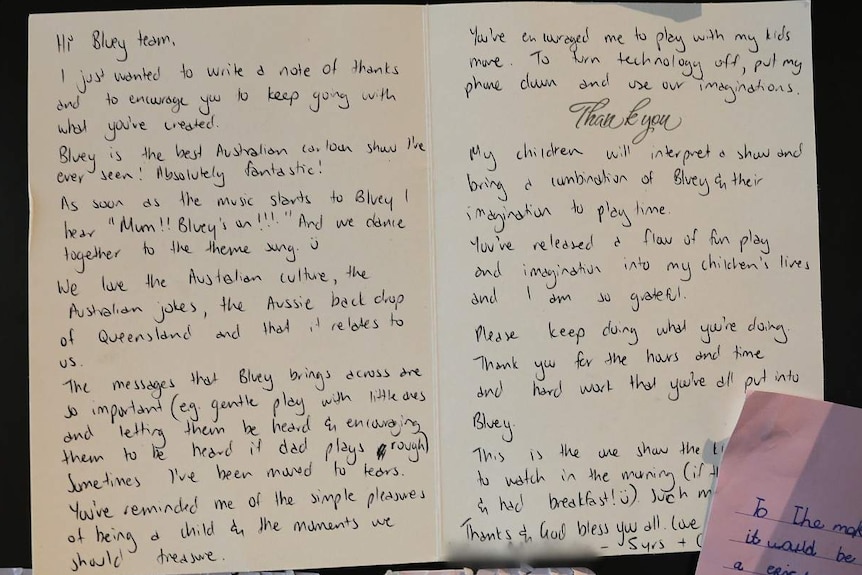 Hi Bluey team,
I just wanted to write a note of thanks
and to encourage you to keep going with
what you've created.
Bluey is the best Australian cartoon show I've
ever seen! Absolutely fantastic!
As soon as the music starts to Bluey I
hear "Mum!! Bluey's on!!!" And we dance
together to the theme song. Ü
We love the Australian culture, the
Australian jokes, the Aussie back drop
of Queensland and that it relates to
us.
The messages that Bluey brings across are
so important (eg. gentle play with little ones
and letting them be heard & encouraging
them to be heard if dad plays rough)
Sometimes I've been moved to tears.
You've reminded me of the simple pleasures
of being a child & the moments we
should treasure.
You've encouraged me to play with my kids
more. To turn technology off, put my
phone down and use our imaginations.
Thank you
My children will interpret a show and
bring a combination of Bluey & their
imagination to play time.
You've released a flow of fun play
and imagination into my children's lives
and I am so grateful.
Please keep doing what you're doing.
Thank you for the hours and time
and hard work that you've all put into
Bluey.
This is the one show the
to watch in the morning (if
& had breakfast! Ü) Such
Thanks & God bless you all. Love
- 5yrs +
To The
it would be
a